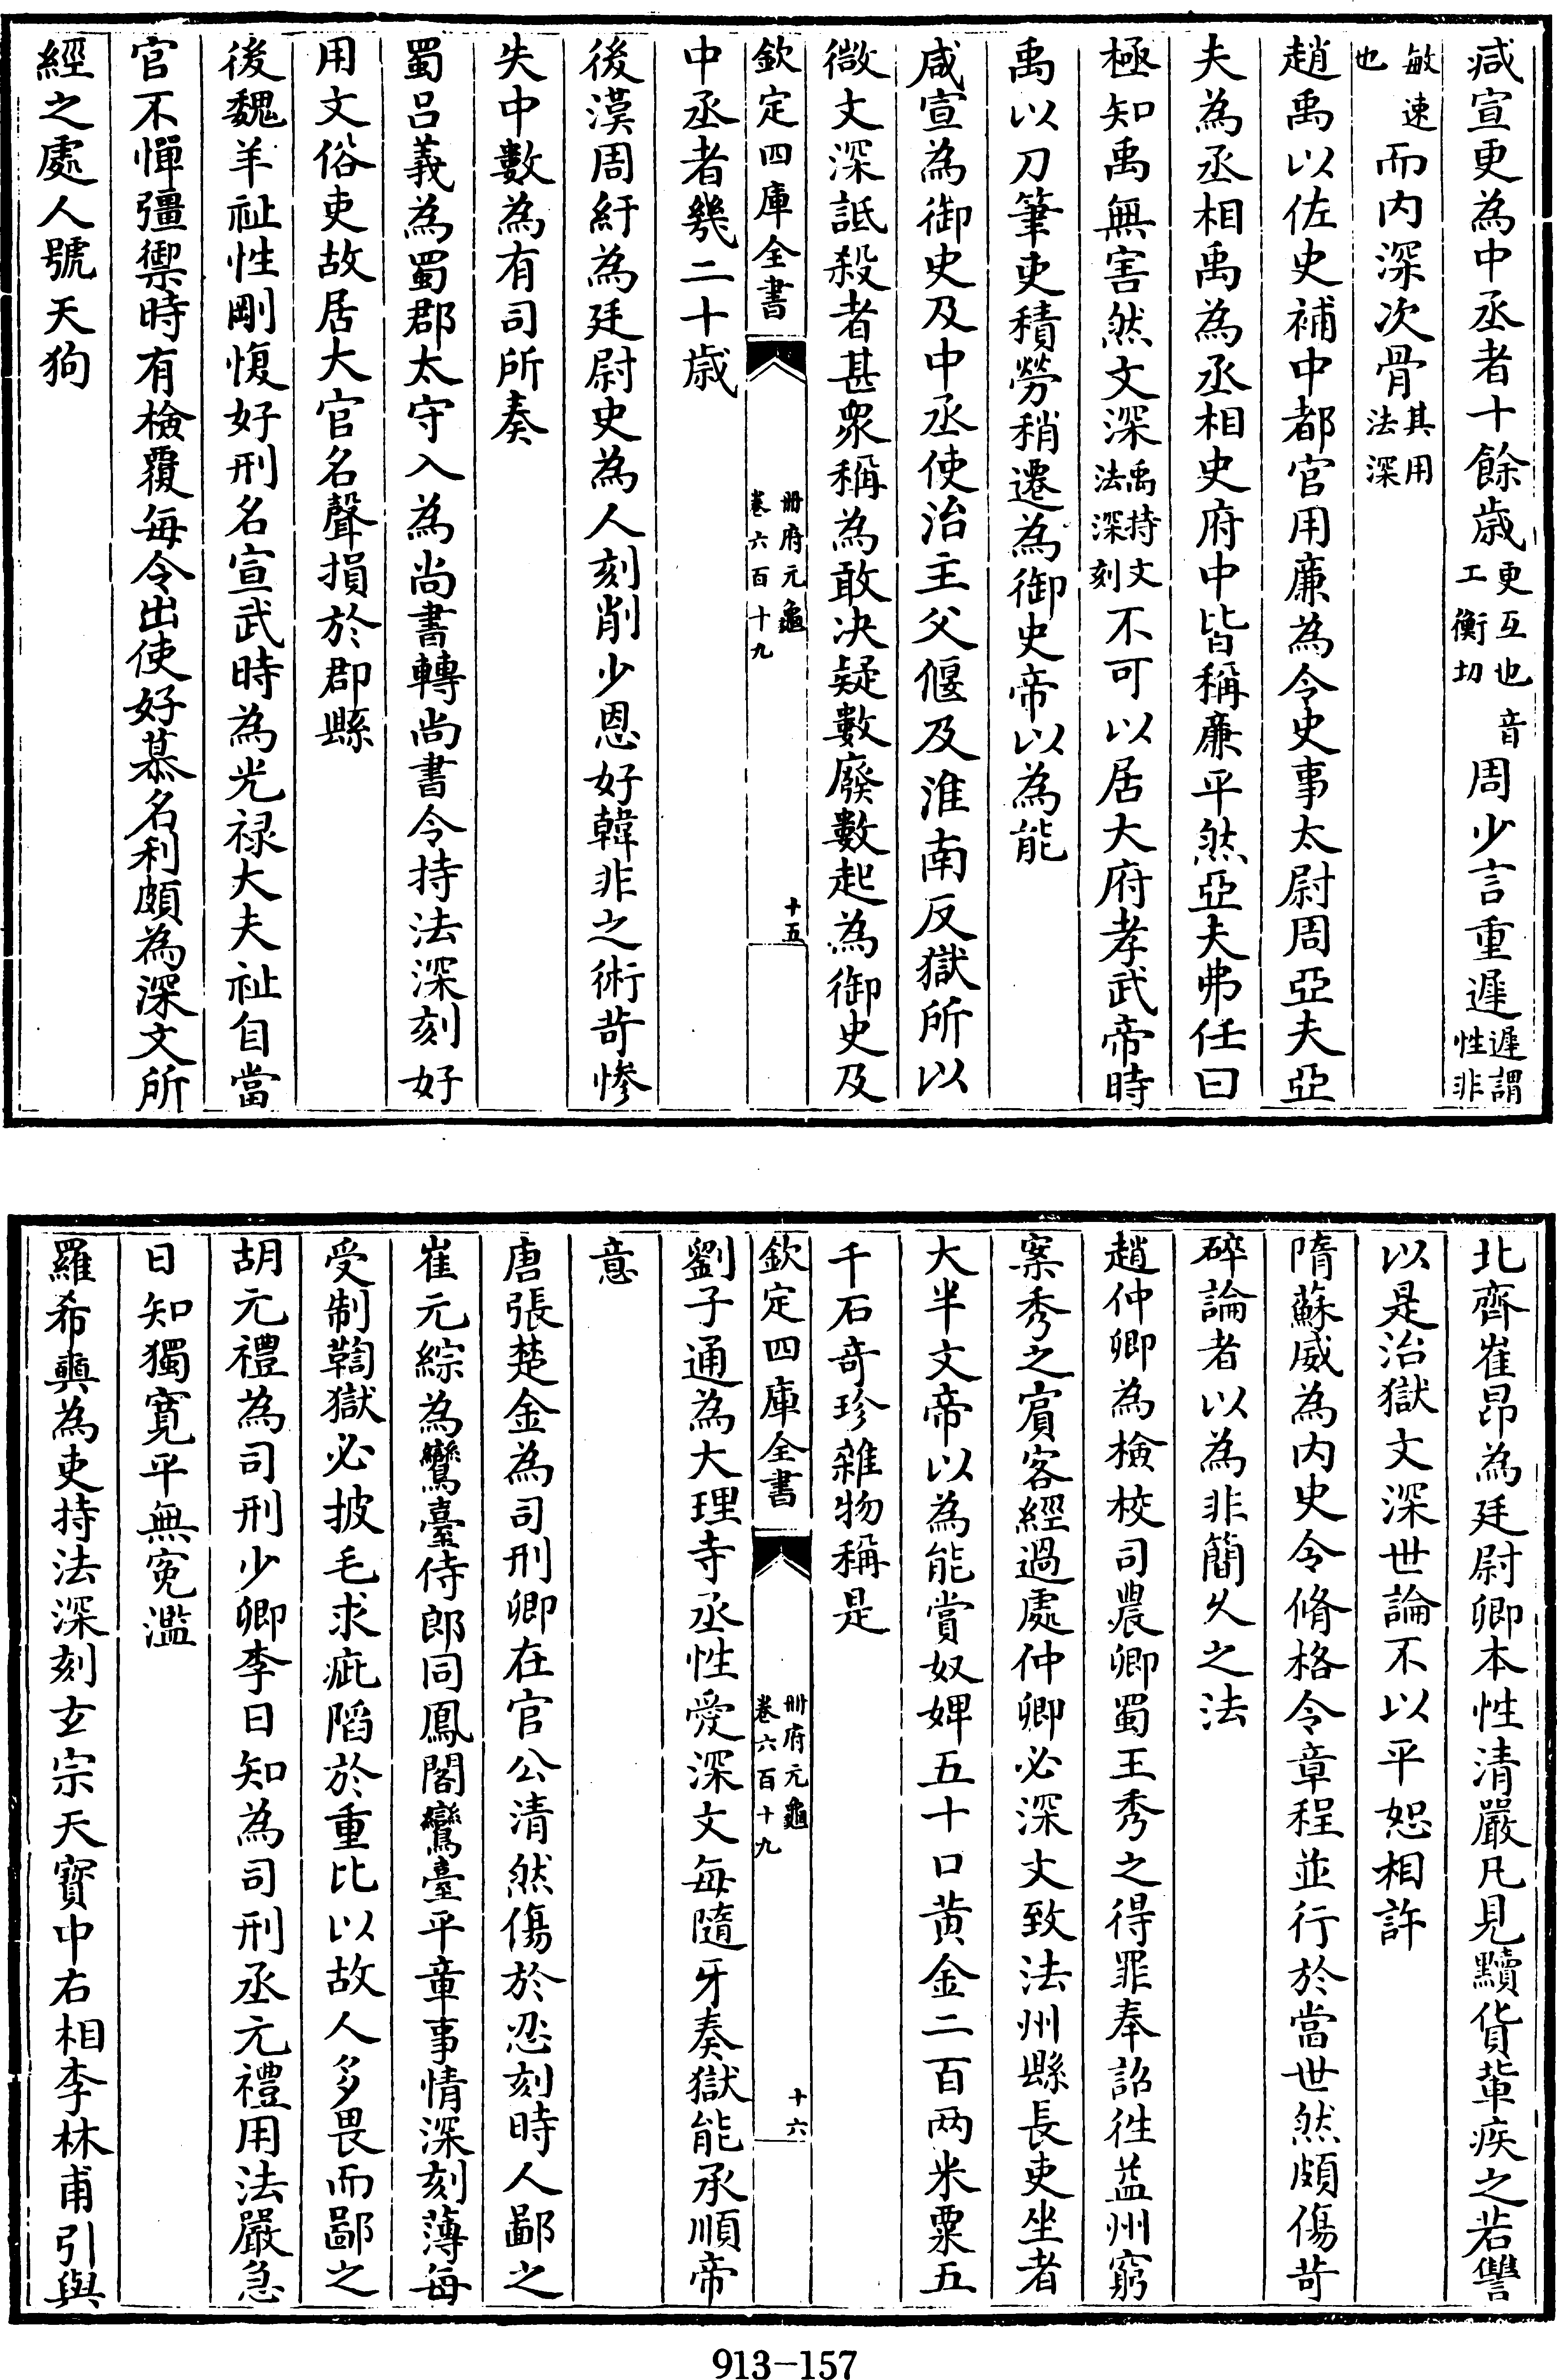 咸宣更為中丞者十餘歲更互也音工衡切周少言重遲遲謂性非
敏速也而内深次骨其用法深
趙禹以佐史補中都官用廉為令史事太尉周亞夫亞
夫為丞相禹為丞相史府中皆稱廉平然亞夫弗任曰
極知禹無害然文深禹持文法深刻不可以居大府孝武帝時
禹以刀筆吏積勞稍遷為御史帝以為能
咸宣為御史及中丞使治主父偃及淮南反獄所以
微文深詆殺者甚衆稱為敢决疑數廢數起為御史及
欽定四庫全書
冊府元龜
卷六百十九
十五
中丞者幾二十歲
後漢周紆為廷尉史為人刻削少恩好韓非之術苛慘
失中數為有司所奏
蜀呂義為蜀郡太守入為尚書轉尚書令持法深刻好
用文俗吏故居大官名聲損於郡縣
後魏羊祉性剛愎好刑名宣武時為光禄大夫祉自當
官不憚彊禦時有檢覆每令出使好慕名利頗為深文所
經之處人號天狗
北齊崔昂為廷尉卿本性清嚴凡見黷貨輩疾之若讐
以是治獄文深世論不以平恕相許
隋蘇威為内史令脩格令章程並行於當世然頗傷苛
碎論者以為非簡久之法
趙仲卿為檢校司農卿蜀王秀之得罪奉詔徃益州窮
案秀之賓客經過處仲卿必深文致法州縣長吏坐者
大半文帝以為能賞奴婢五十口黄金二百两米粟五
千石奇珍雜物稱是
欽定四庫全書
冊府元龜
卷六百十九
十六
劉子通為大理寺丞性愛深文每隨牙奏獄能承順帝
意
唐張楚金為司刑卿在官公清然傷於忍刻時人鄙之
崔元綜為鸞臺侍郎同鳳閣鸞臺平章事情深刻薄每
受制鞫獄必披毛求疵陷於重比以故人多畏而鄙之
胡元禮為司刑少卿李日知為司刑丞元禮用法嚴急
日知獨寛平無寃濫
羅希奭為吏持法深刻玄宗天寳中右相李林甫引與
913-157